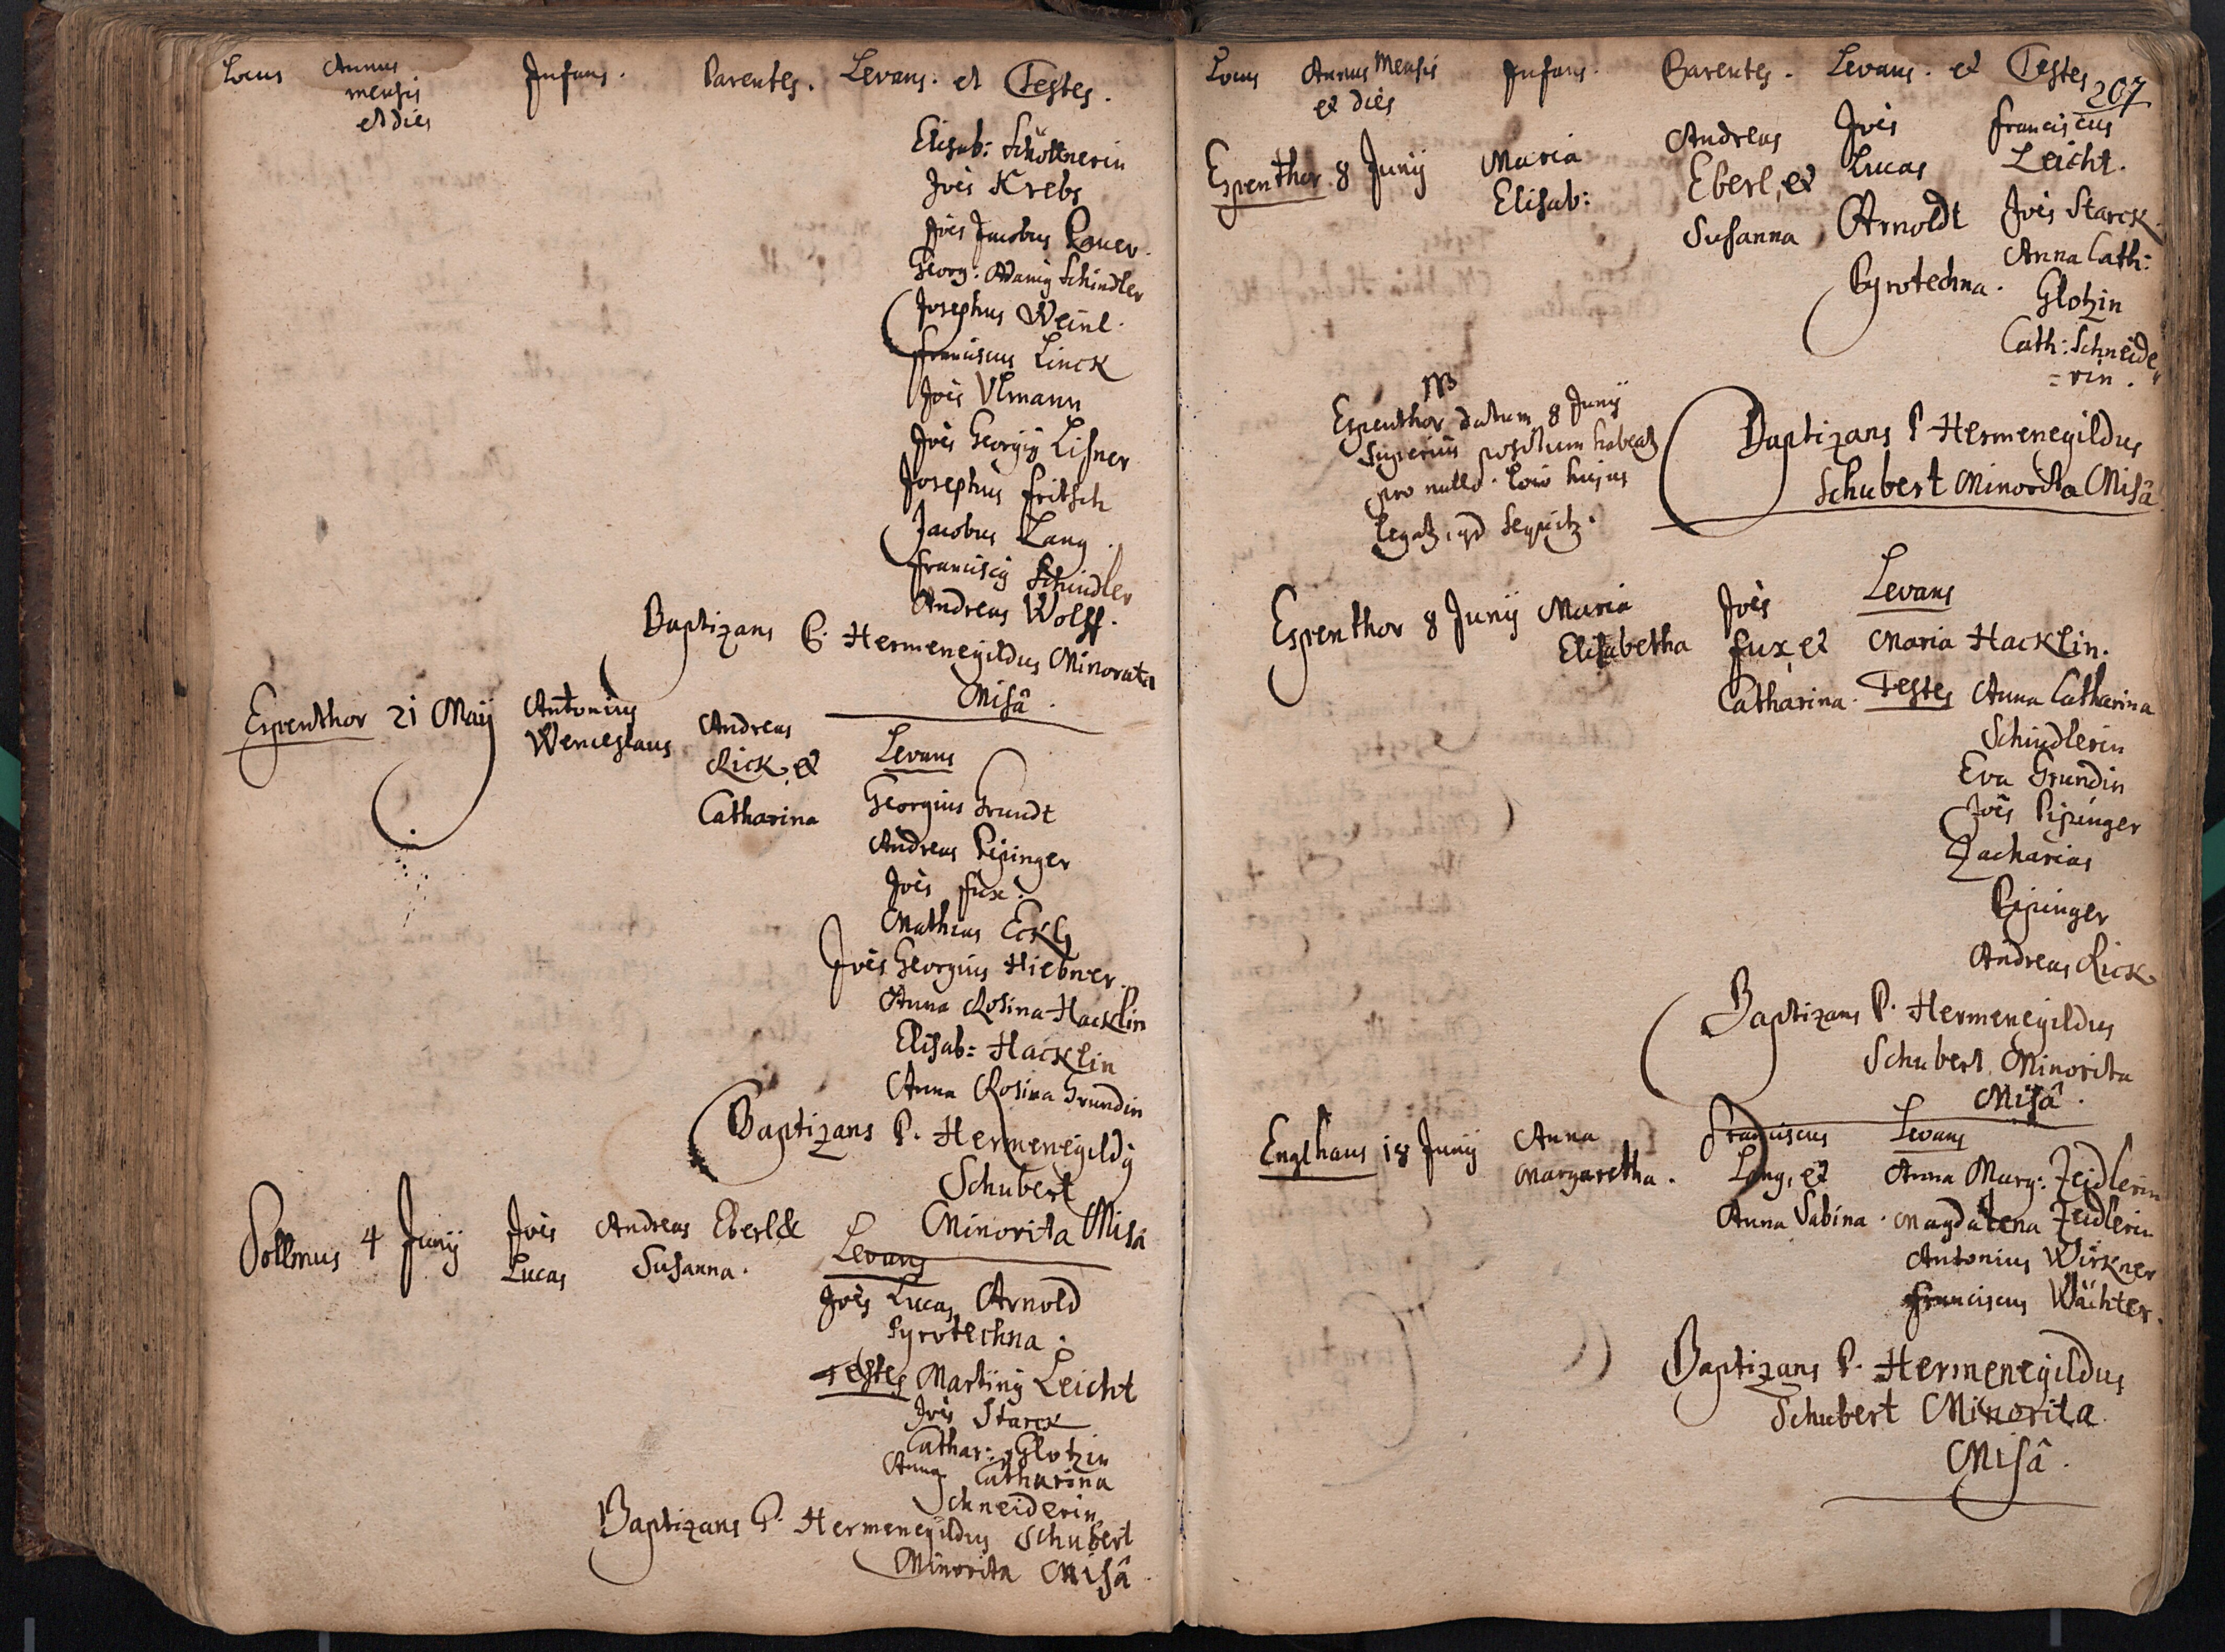 Locus Annus Infans. Parentes. Levans. et Testes.
mensis
et dies
Elisab: Schöttnerin
Jöes Krebs
Jöes Jacobus Pauer.
Georg: Adamus Schindler
Josephus Weinl.
Franciscus Linck
Jöes Vlmann
Jöes Georgius Lisner
Josephus Fritsch
Jacobus Lang.
Franciscus Schindler
Andreas Wolff.
Baptizans P. Hermenegildus Minorita
Misâ.
Espenthor 21 Maij Antonius Wenceslaus
Andreas Rick, et Catharina
Levans
Georgius Grundt
Andreas Pipinger
Jöes Fux.
Mathias Eckl
Jöes Georgius Hiebner.
Anna Rosina Hacklin
Elisab: Hacklin
Anna Rosina Grundin
Baptizans P. Hermenegildus
Schubert
Minorita Misâ
Sollmus 4 Junij Jöes Lucas
Andreas Eberl & Susanna.
Levans
Jöes Lucas Arnold
Pyrotechna.
Testes Martinus Leicht
Jöes Starck
Cathar: Glotzin
Anna Catharina
Schneiderin
Baptizans P. Hermenegildus Schubert
Minorita Misâ
Locus Annus Mensis Infans. Parentes. Levans. et Testes
et dies
207
Espenthor 8 Junij Maria Elisab:
Andreas Eberl, et Susanna
Jöes Lucas Arnoldt Pyrotechna.
Franciscus
Leicht.
Jöes Starck.
Anna Cath:
Glotzin
Cath: Schneide
=rin.
Baptizans P Hermenegildus
Schubert Minorita Misâ
NB
Espenthor datum 8 Junij
superius positum habeatz
pro nullo. loco hujus
legatz, qd sequitz.
Espenthor 8 Junij Maria Elisabetha
Jöes Fux, et Catharina.
Levans
Maria Hacklin.
Testes Anna Catharina
Schindlerin
Eva Grundin
Jöes Pipinger
Zacharias
Pipinger
Andreas Rick
Baptizans P. Hermenegildus
Schubert Minorita
Misâ.
Englhaus 18 Junij Anna Margaretha.
Franciscus Lang, et Anna Sabina.
Levans
Anna Marg: Zeidlerin
Magdalena Zeidlerin
Antonius Wirkner
Franciscus Wächter.
Baptizans P. Hermenegildus
Schubert Minorita
Misâ.